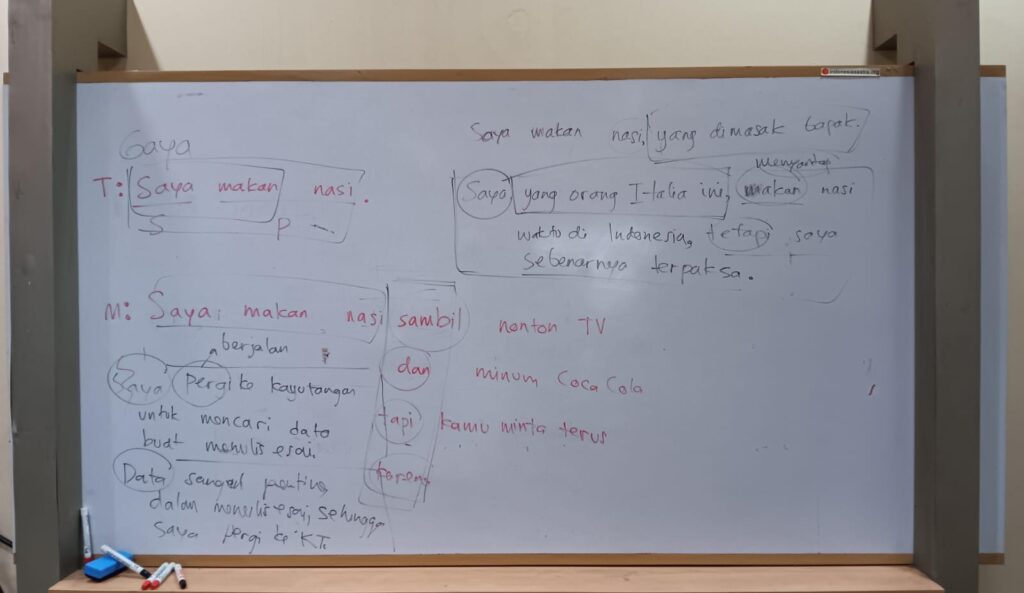 Gaya
T: Saya makan nasi.
S P
M: Saya makan nasi sambil nonton TV
dan minum Coca Cola
tapi kamu minta terus
karena
berjalan
Saya pergi ke kayutangan
untuk mencari data
buat menulis esai.
Data sangat penting
dalam menulis esai, sehingga
saya pergi ke KT.
Saya makan nasi, yang dimasak bapak.
menyantap
Saya, yang orang Italia ini, makan nasi
waktu di Indonesia, tetapi saya
sebenarnya terpaksa.